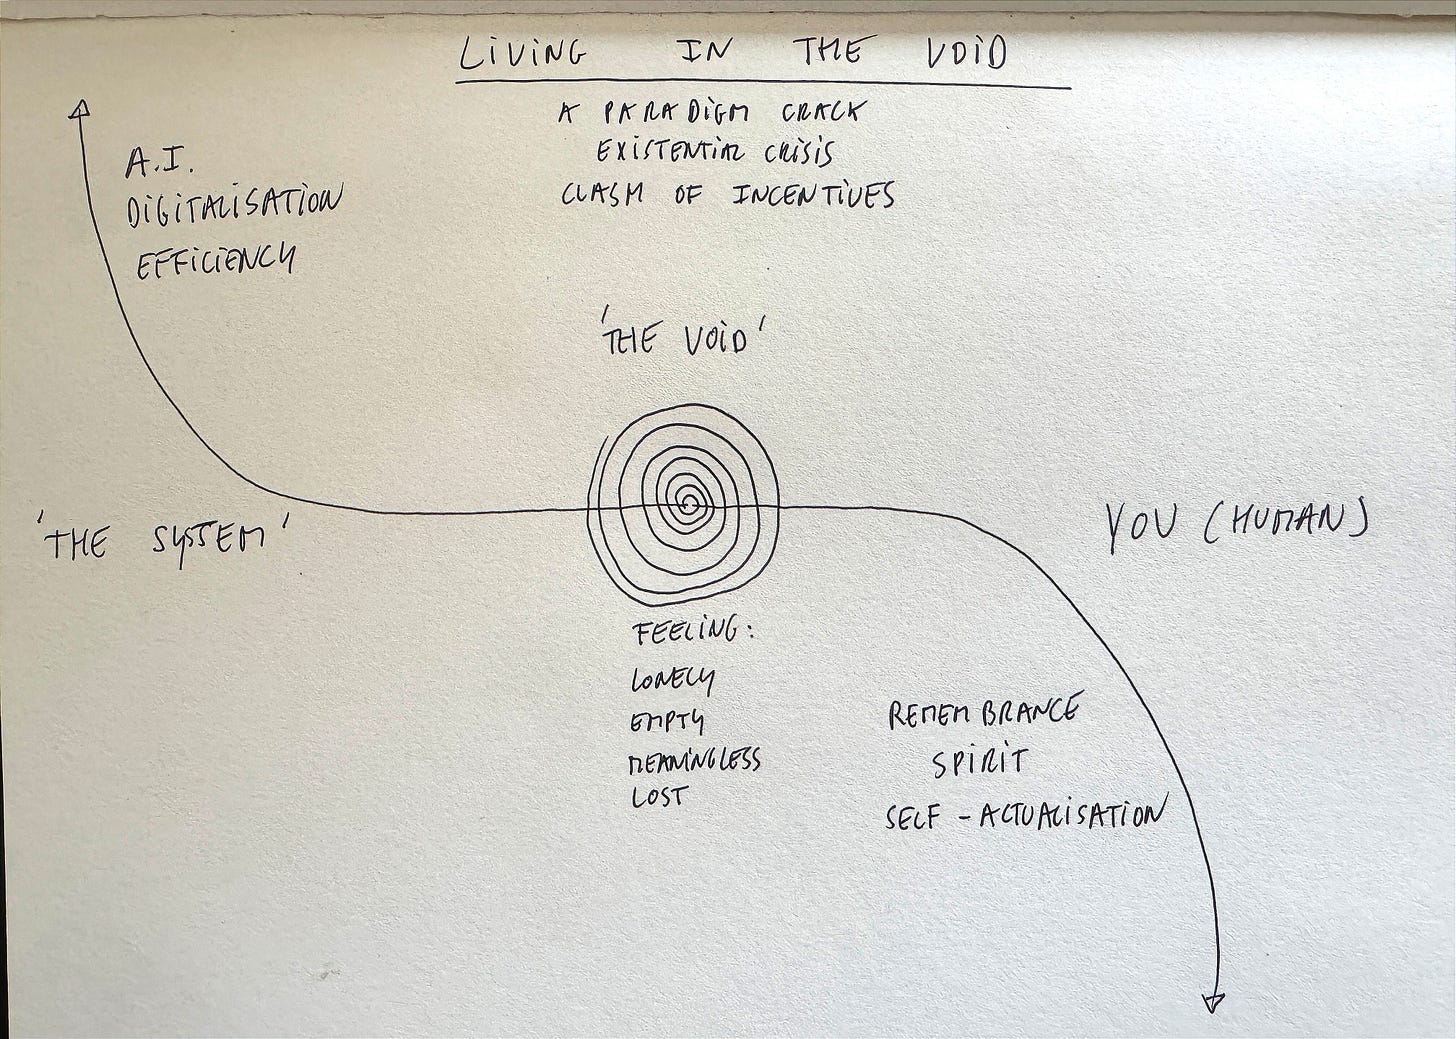 LIVING IN THE VOID
A PARADIGM CRACK
EXISTENTIAL CRISIS
CLASH OF INCENTIVES
A.I.
DIGITALISATION
EFFICIENCY
'THE VOID'
'THE SYSTEM'
YOU (HUMAN)
FEELING:
LONELY
EMPTY
MEANINGLESS
LOST
REMEMBRANCE
SPIRIT
SELF - ACTUALISATION